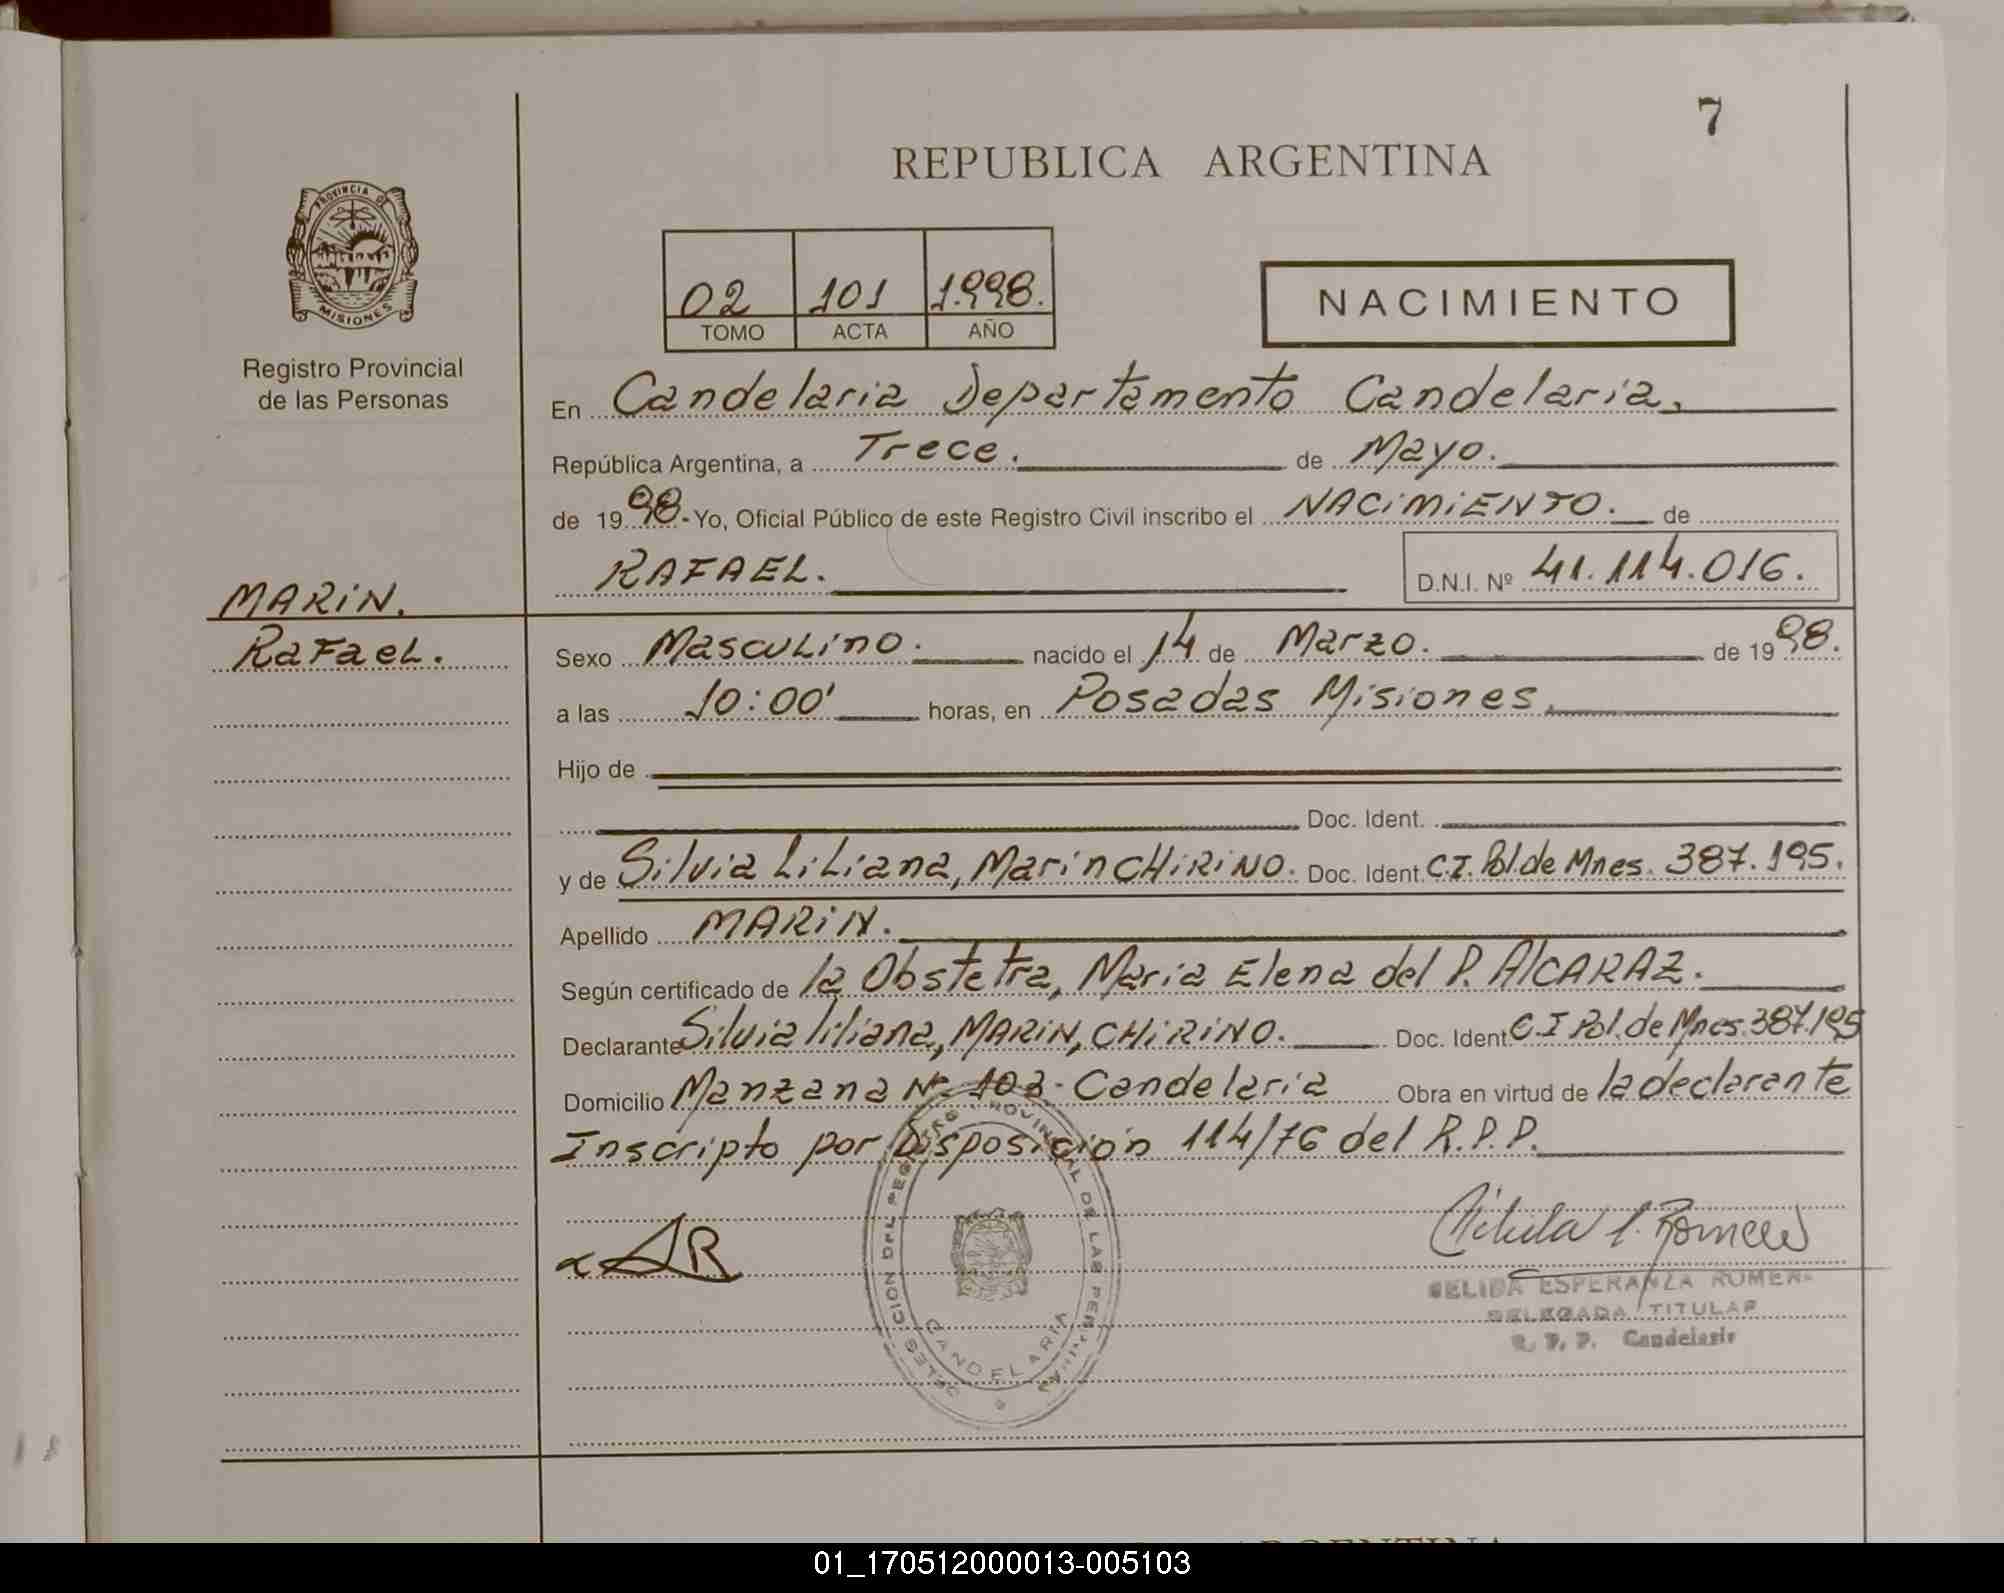 7
REPUBLICA ARGENTINA
PROVINCIA DE
MISIONES
Registro Provincial
de las Personas
02 101 1.998.
TOMO ACTA AÑO
NACIMIENTO
En Candelaria Departamento Candelaria.
República Argentina, a Trece. de Mayo.
de 19 98.- Yo, Oficial Público de este Registro Civil inscribo el NACIMIENTO. de
RAFAEL. D.N.I. Nº 41.114.016.
MARIN.
RaFaeL.
Sexo MascuLino. nacido el 14 de Marzo. de 19 98.
a las 10:00' horas, en Posadas Misiones.
Hijo de
Doc. Ident.
y de Silvia Liliana, Marin CHIRINO. Doc. Ident. C.I. Pol. de Mnes. 387.195.
Apellido MARIN.
Según certificado de la Obstetra, Maria Elena del P. AlCARAZ.
Declarante Silvia liliana, MARIN, CHIRINO. Doc. Ident C.I Pol. de Mnes. 387.195
Domicilio Manzana Nº 103- Candelaria Obra en virtud de la declarante
Inscripto por Disposición 114/76 del R.P.P.
REGISTRO PROVINCIAL DE LAS PERSONAS
CANDELARIA
ESPERANZA ROMERO
DELEGADA TITULAR
R. P. P. Candelaria
ARGENTINA
01_170512000013-005103